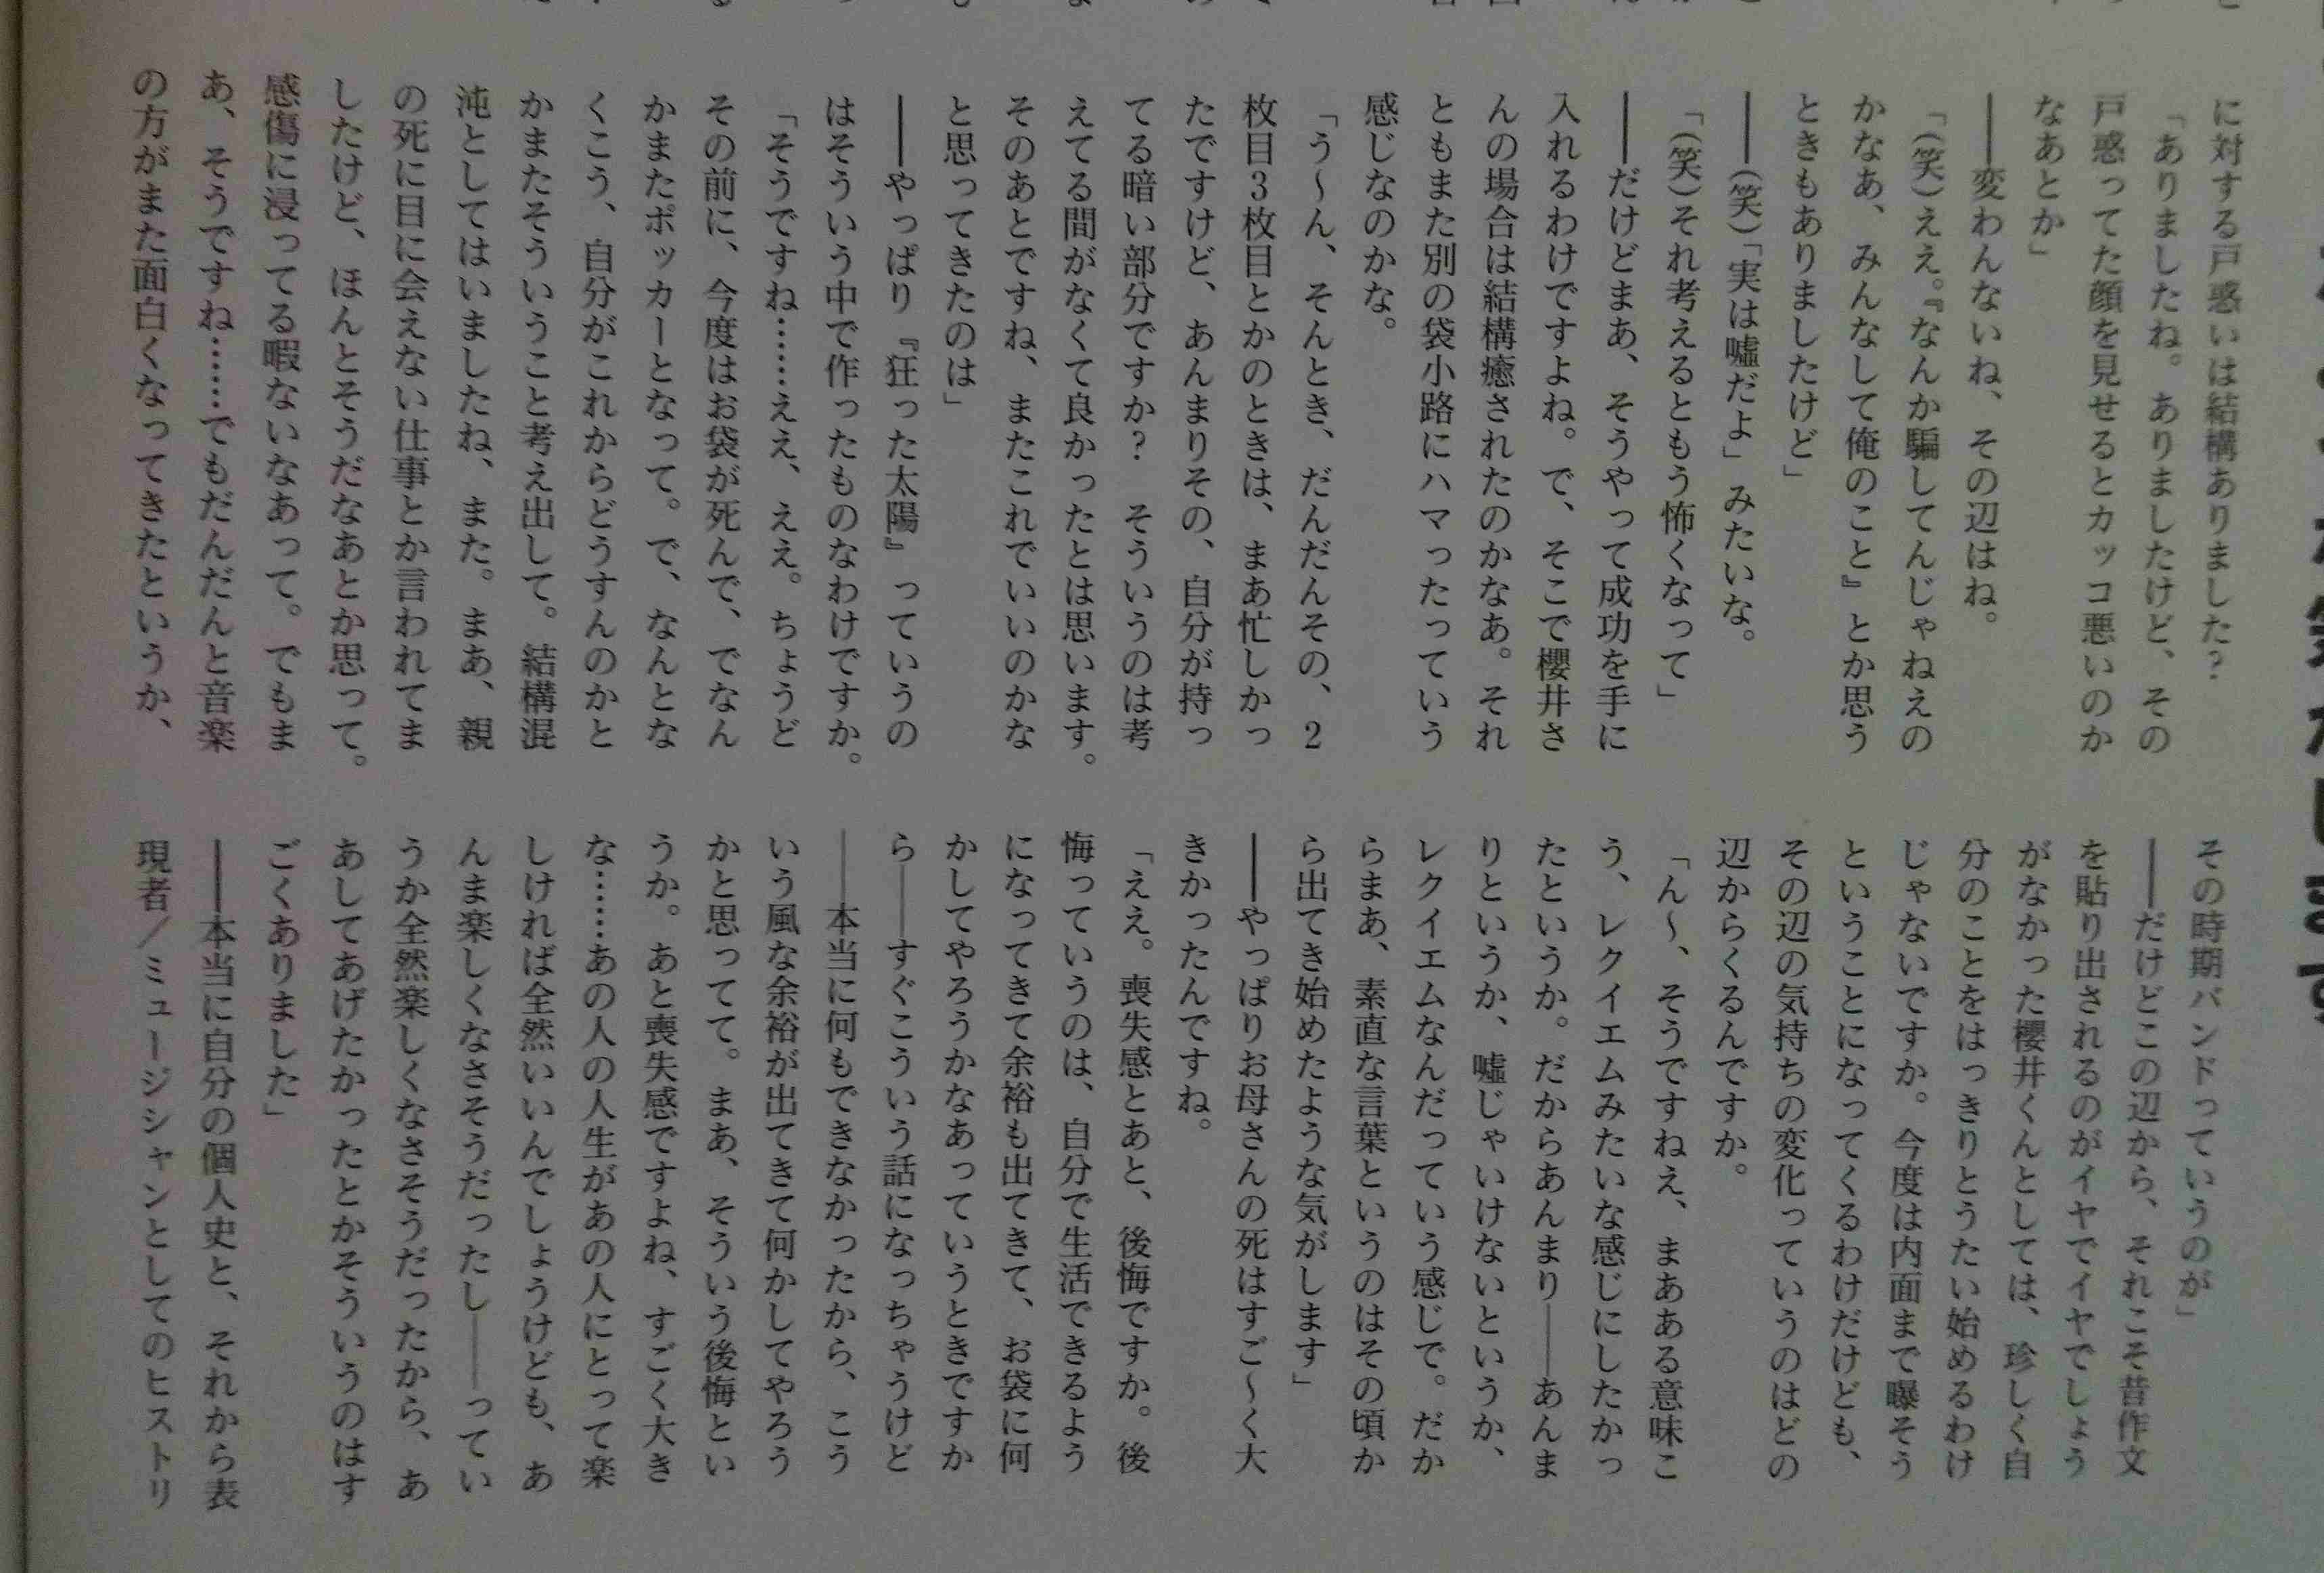 に対する戸惑いは結構ありました?
「ありましたね。ありましたけど、その
戸惑ってた顔を見せるとカッコ悪いのか
なあとか」
――変わんないね、その辺はね。
「(笑)ええ。『なんか騙してんじゃねえの
かなあ、みんなして俺のこと』とか思う
ときもありましたけど」
――(笑)「実は嘘だよ」みたいな。
「(笑)それ考えるともう怖くなって」
――だけどまあ、そうやって成功を手に
入れるわけですよね。で、そこで櫻井さ
んの場合は結構癒されたのかなあ。それ
ともまた別の袋小路にハマったっていう
感じなのかな。
「う〜ん、そんとき、だんだんその、2
枚目3枚目とかのときは、まあ忙しかっ
たですけど、あんまりその、自分が持っ
てる暗い部分ですか? そういうのは考
えてる間がなくて良かったとは思います。
そのあとですね、またこれでいいのかな
と思ってきたのは」
――やっぱり『狂った太陽』っていうの
はそういう中で作ったものなわけですか。
「そうですね……ええ、ええ。ちょうど
その前に、今度はお袋が死んで、でなん
かまたポッカーとなって。で、なんとな
くこう、自分がこれからどうすんのかと
かまたそういうこと考え出して。結構混
沌としてはいましたね、また。まあ、親
の死に目に会えない仕事とか言われてま
したけど、ほんとそうだなあとか思って。
感傷に浸ってる暇ないなあって。でもま
あ、そうですね……でもだんだんと音楽
の方がまた面白くなってきたというか、
その時期バンドっていうのが」
――だけどこの辺から、それこそ昔作文
を貼り出されるのがイヤでイヤでしょう
がなかった櫻井くんとしては、珍しく自
分のことをはっきりとうたい始めるわけ
じゃないですか。今度は内面まで曝そう
ということになってくるわけだけども、
その辺の気持ちの変化っていうのはどの
辺からくるんですか。
「ん〜、そうですねえ、まあある意味こ
う、レクイエムみたいな感じにしたかっ
たというか。だからあんまり――あんま
りというか、嘘じゃいけないというか、
レクイエムなんだっていう感じで。だか
らまあ、素直な言葉というのはその頃か
ら出てき始めたような気がします」
――やっぱりお母さんの死はすご〜く大
きかったんですね。
「ええ。喪失感とあと、後悔ですか。後
悔っていうのは、自分で生活できるよう
になってきて余裕も出てきて、お袋に何
かしてやろうかなあっていうときですか
ら――すぐこういう話になっちゃうけど
――本当に何もできなかったから、こう
いう風な余裕が出てきて何かしてやろう
かと思ってて。まあ、そういう後悔とい
うか。あと喪失感ですよね、すごく大き
な……あの人の人生があの人にとって楽
しければ全然いいんでしょうけども、あ
んま楽しくなさそうだったし――ってい
うか全然楽しくなさそうだったから、あ
あしてあげたかったとかそういうのはす
ごくありました」
――本当に自分の個人史と、それから表
現者／ミュージシャンとしてのヒストリ